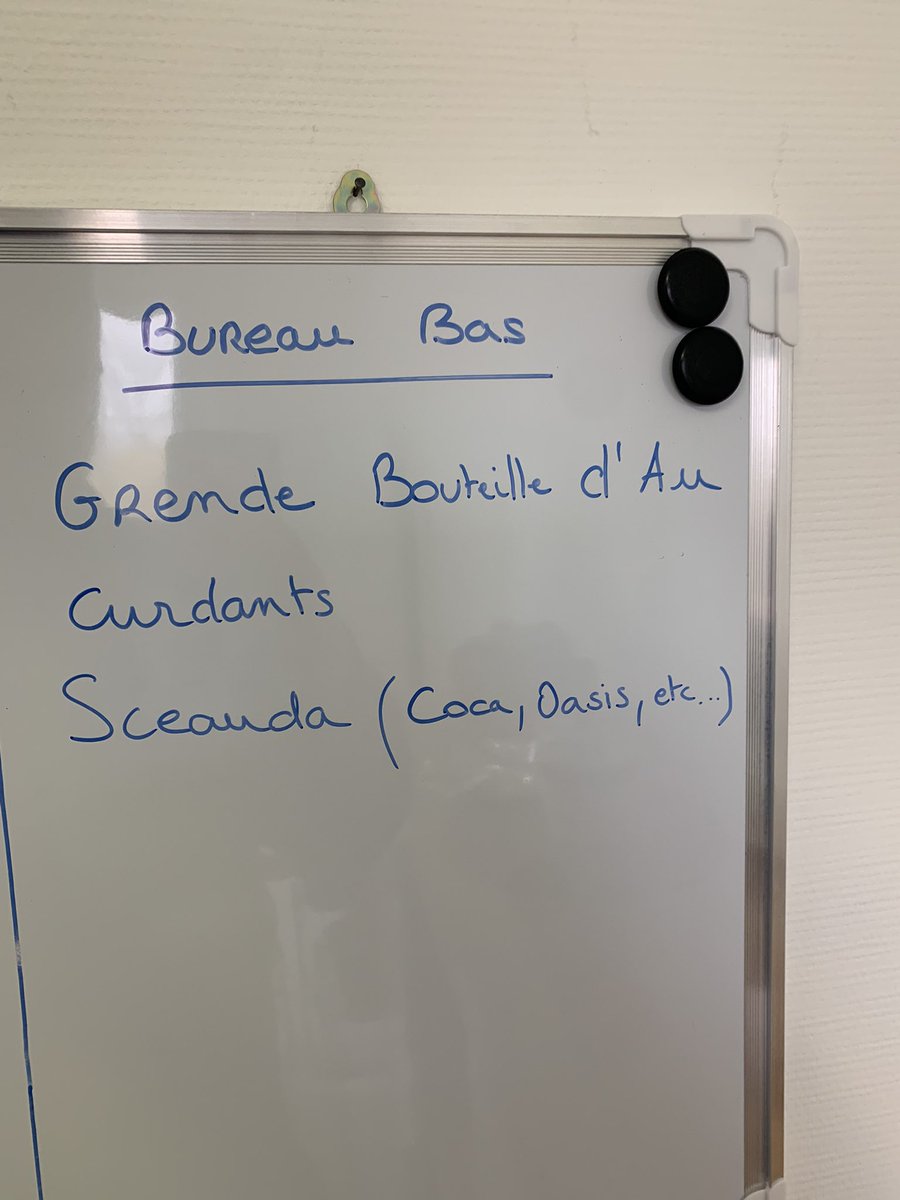 Bureau Bas
Grende Bouteille d'Au
Curdants
Sceauda (Coca, Oasis, etc...)